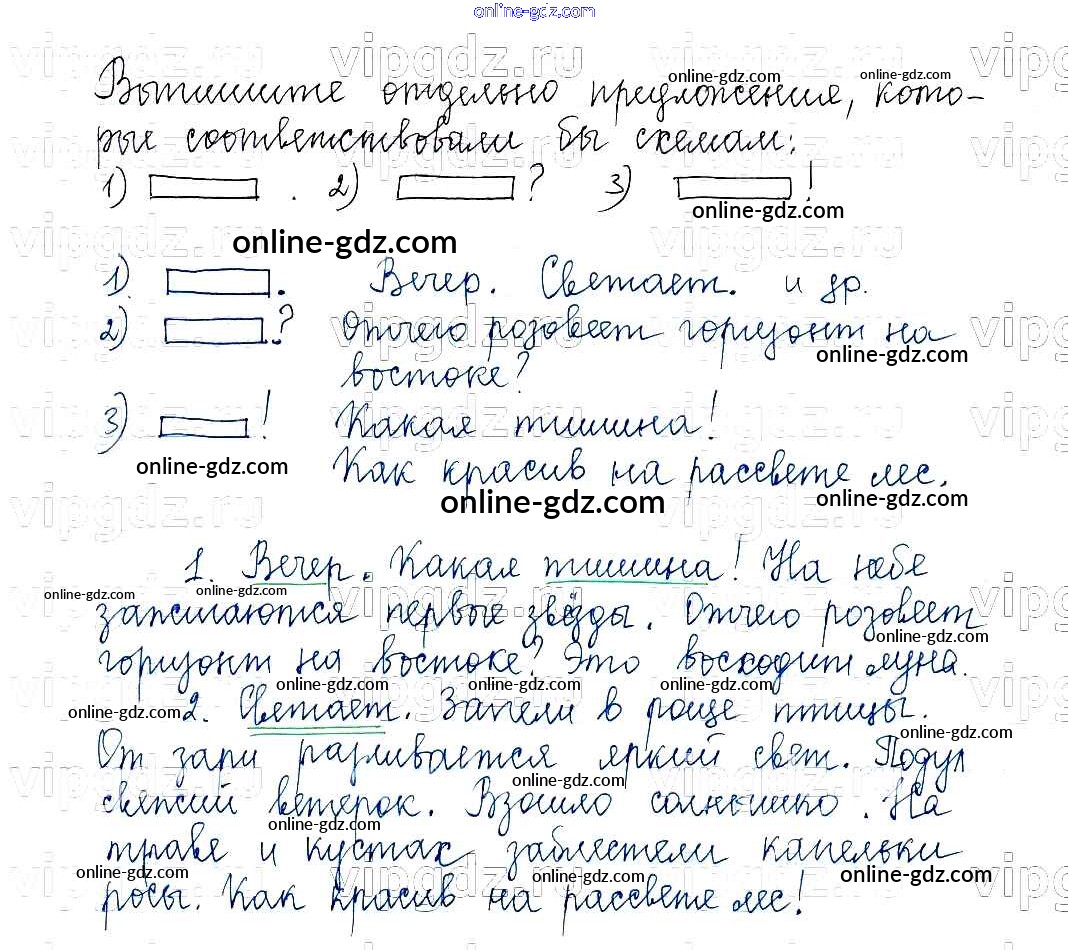 online-gdz.com
Выпишите отдельно предложения, кото-
рые соответствовали бы схемам:
1) . 2) ? 3) !
1) . Вечер. Светает. и др.
2) ? Отчего розовеет горизонт на
востоке?
3) ! Какая тишина!
Как красив на рассвете лес.
1. Вечер. Какая тишина! На небе
зажигаются первые звёзды. Отчего розовеет
горизонт на востоке? Это восходит луна.
2. Светает. Запели в роще птицы.
От зари разливается яркий свет. Подул
свежий ветерок. Взошло солнышко. На
траве и кустах заблестели капельки
росы. Как красив на рассвете лес!